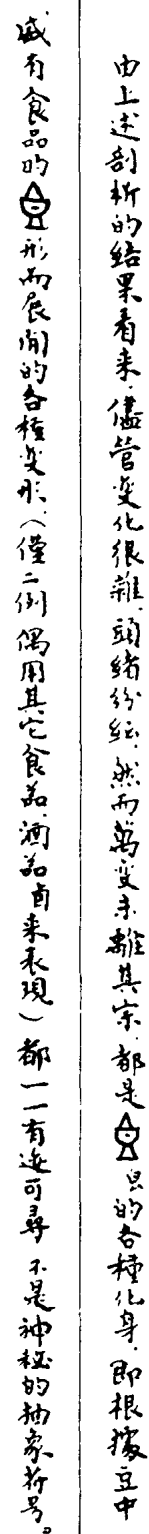 由上述剖析的结果看来，儘管变化很雜，頭緒纷纭，然而萬变未離其宗，都是皀的各種化身，即根據豆中
盛有食品的形而展開的各種变形，（僅二例偶用其它食器、酒器卣来表現）都一一有迹可尋，不是神秘的抽象符号。